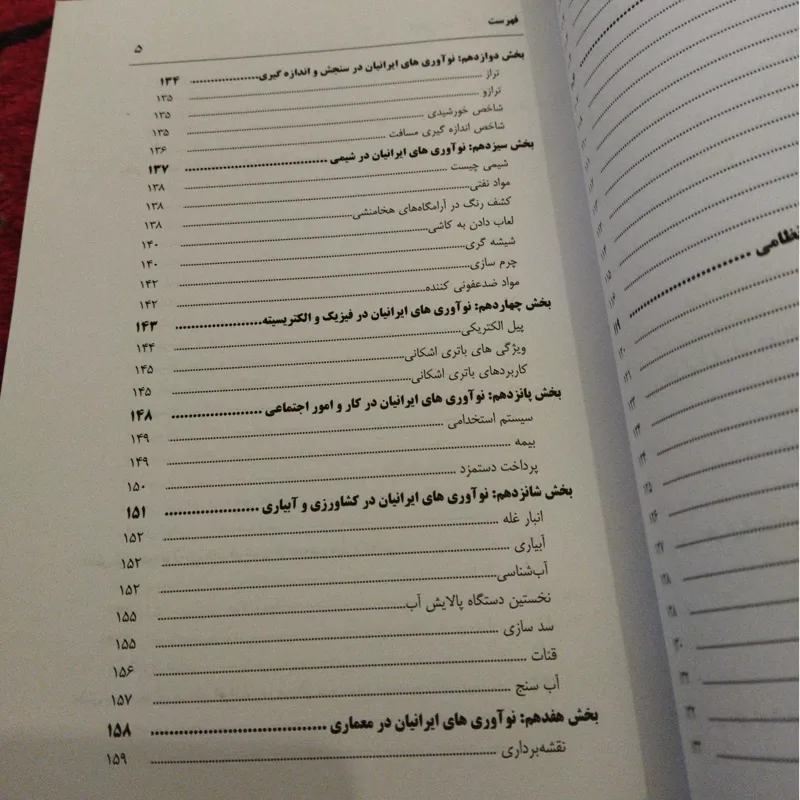 فهرست ۵
بخش دوازدهم: نوآوری های ایرانیان در سنجش و اندازه گیری ........ ۱۳۴
تراز ........ ۱۳۵
ترازو ........ ۱۳۵
شاخص خورشیدی ........ ۱۳۵
شاخص اندازه گیری مسافت ........ ۱۳۶
بخش سیزدهم: نوآوری های ایرانیان در شیمی ........ ۱۳۷
شیمی چیست ........ ۱۳۸
مواد نفتی ........ ۱۳۸
کشف رنگ در آرامگاه‌های هخامنشی ........ ۱۳۸
لعاب دادن به کاشی ........ ۱۴۰
شیشه گری ........ ۱۴۰
چرم سازی ........ ۱۴۲
مواد ضدعفونی کننده ........ ۱۴۲
بخش چهاردهم: نوآوری های ایرانیان در فیزیک و الکتریسیته ........ ۱۴۳
پیل الکتریکی ........ ۱۴۴
ویژگی های باتری اشکانی ........ ۱۴۵
کاربردهای باتری اشکانی ........ ۱۴۵
بخش پانزدهم: نوآوری های ایرانیان در کار و امور اجتماعی ........ ۱۴۸
سیستم استخدامی ........ ۱۴۹
بیمه ........ ۱۴۹
پرداخت دستمزد ........ ۱۵۰
بخش شانزدهم: نوآوری های ایرانیان در کشاورزی و آبیاری ........ ۱۵۱
انبار غله ........ ۱۵۲
آبیاری ........ ۱۵۲
آب‌شناسی ........ ۱۵۲
نخستین دستگاه پالایش آب ........ ۱۵۵
سد سازی ........ ۱۵۵
قنات ........ ۱۵۶
آب سنج ........ ۱۵۷
بخش هفدهم: نوآوری های ایرانیان در معماری ........ ۱۵۸
نقشه‌برداری ........ ۱۵۹